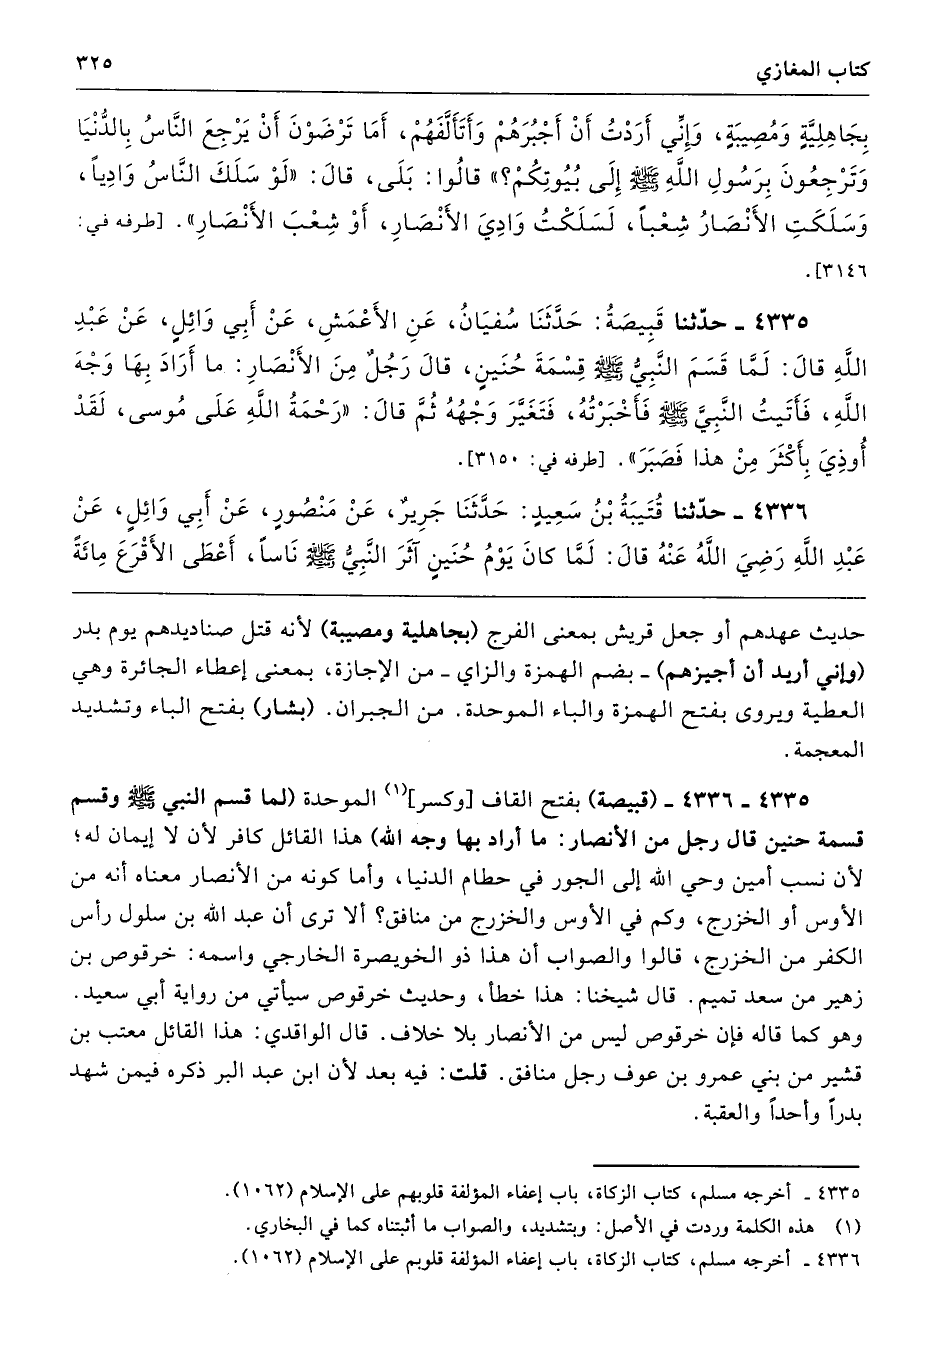 كتاب المغازي ٣٢٥
بِجَاهِلِيَّةٍ وَمُصِيبَةٍ، وَإِنِّي أَرَدْتُ أَنْ أَجْبُرَهُمْ وَأَتَأَلَّفَهُمْ، أَمَا تَرْضَوْنَ أَنْ يَرْجِعَ النَّاسُ بِالدُّنْيَا
وَتَرْجِعُونَ بِرَسُولِ اللَّهِ ﷺ إِلَى بُيُوتِكُمْ؟» قالُوا: بَلَى، قالَ: «لَوْ سَلَكَ النَّاسُ وَادِياً،
وَسَلَكَتِ الأَنْصَارُ شِعْباً، لَسَلَكْتُ وَادِيَ الأَنْصَارِ، أَوْ شِعْبَ الأَنْصَارِ». [طرفه في:
٣١٤٦].
٤٣٣٥ ـ حدّثنا قَبِيصَةُ: حَدَّثَنَا سُفيَانُ، عَنِ الأَعْمَشِ، عَنْ أَبِي وَائِلٍ، عَنْ عَبْدِ
اللَّهِ قالَ: لَمَّا قَسَمَ النَّبِيُّ ﷺ قِسْمَةَ حُنَينٍ، قالَ رَجُلٌ مِنَ الأَنْصَارِ: ما أَرَادَ بِهَا وَجْهَ
اللَّهِ، فَأَتَيتُ النَّبِيَّ ﷺ فَأَخْبَرْتُهُ، فَتَغَيَّرَ وَجْهُهُ ثُمَّ قالَ: «رَحْمَةُ اللَّهِ عَلَى مُوسى، لَقَدْ
أُوذِيَ بِأَكْثَرَ مِنْ هذا فَصَبَرَ». [طرفه في: ٣١٥٠].
٤٣٣٦ ـ حدّثنا قُتَيبَةُ بْنُ سَعِيدٍ: حَدَّثَنَا جَرِيرٌ، عَنْ مَنْصُورٍ، عَنْ أَبِي وَائِلٍ، عَنْ
عَبْدِ اللَّهِ رَضِيَ اللَّهُ عَنْهُ قالَ: لَمَّا كانَ يَوْمُ حُنَينٍ آثَرَ النَّبِيُّ ﷺ نَاساً، أَعْطَى الأَقْرَعَ مِائَةً
حديث عهدهم أو جعل قريش بمعنى الفرج (بجاهلية ومصيبة) لأنه قتل صناديدهم يوم بدر
(وإني أريد أن أجيزهم) ـ بضم الهمزة والزاي ـ من الإجازة، بمعنى إعطاء الجائزة وهي
العطية ويروى بفتح الهمزة والباء الموحدة. من الجبران. (بشار) بفتح الباء وتشديد
المعجمة.
٤٣٣٥ ـ ٤٣٣٦ ـ (قبيصة) بفتح القاف [وكسر](١) الموحدة (لما قسم النبي ﷺ وقسم
قسمة حنين قال رجل من الأنصار: ما أراد بها وجه الله) هذا القائل كافر لأن لا إيمان له؛
لأن نسب أمين وحي الله إلى الجور في حطام الدنيا، وأما كونه من الأنصار معناه أنه من
الأوس أو الخزرج، وكم في الأوس والخزرج من منافق؟ ألا ترى أن عبد الله بن سلول رأس
الكفر من الخزرج، قالوا والصواب أن هذا ذو الخويصرة الخارجي واسمه: خرقوص بن
زهير من سعد تميم. قال شيخنا: هذا خطأ، وحديث خرقوص سيأتي من رواية أبي سعيد.
وهو كما قاله فإن خرقوص ليس من الأنصار بلا خلاف. قال الواقدي: هذا القائل معتب بن
قشير من بني عمرو بن عوف رجل منافق. قلت: فيه بعد لأن ابن عبد البر ذكره فيمن شهد
بدراً وأحداً والعقبة.
٤٣٣٥ ـ أخرجه مسلم، كتاب الزكاة، باب إعفاء المؤلفة قلوبهم على الإسلام (١٠٦٢).
(١) هذه الكلمة وردت في الأصل: وبتشديد، والصواب ما أثبتناه كما في البخاري.
٤٣٣٦ ـ أخرجه مسلم، كتاب الزكاة، باب إعفاء المؤلفة قلوبم على الإسلام (١٠٦٢).